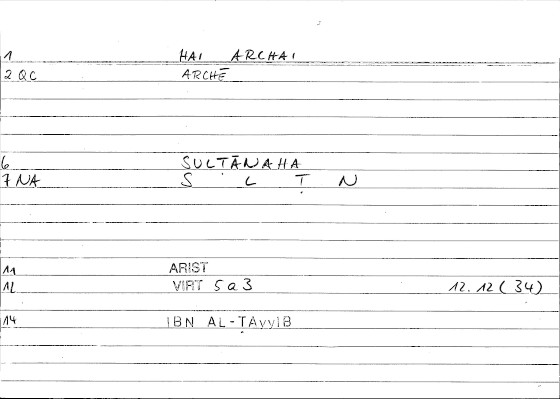 1 HAI ARCHAI
2 QC ARCHĒ
6 SULṬĀNAHA
7 NA S L Ṭ N
11 ARIST
12 VIRT 5a3 12.12 (34)
14 IBN AL-ṬAyyIB